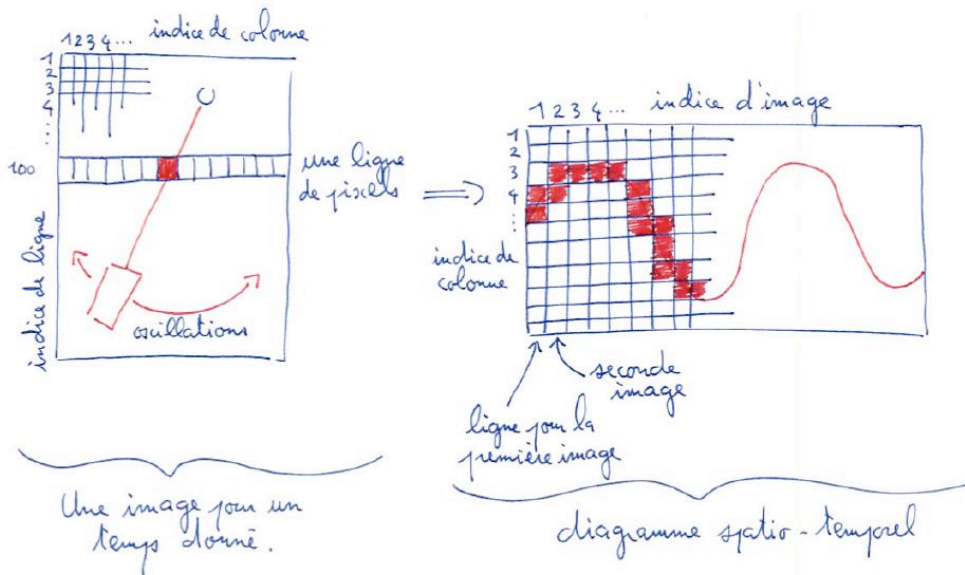 indice de colonne
1 2 3 4 ...
1
2
3
4
⋮
100
indice de ligne
une ligne
de pixels
oscillations
Une image pour un
temps donné.
=>
indice d'image
1 2 3 4 ...
1
2
3
4
⋮
indice de
colonne
seconde
image
ligne pour la
première image
diagramme spatio-temporel